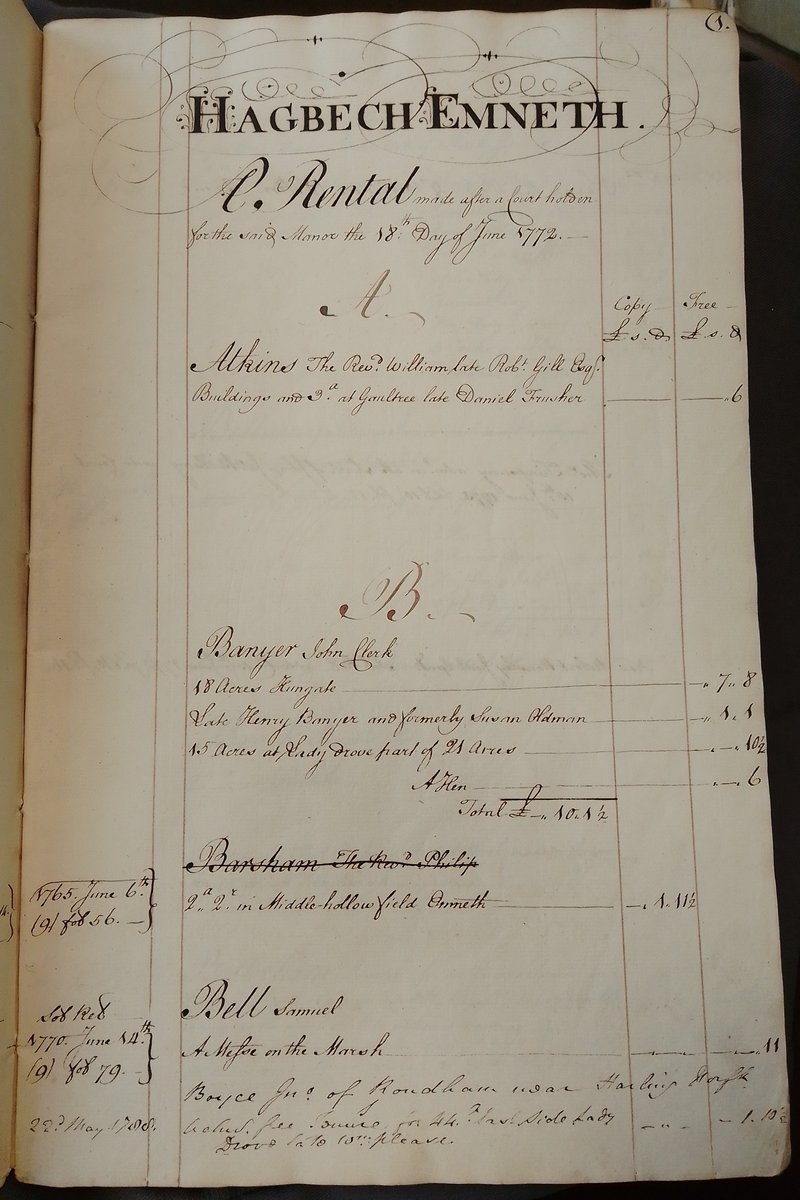 1.
HAGBECH EMNETH.
A Rental made after a Court holden
for the said Manor the 18th. Day of June 1772.
A.
Copy Free
£ s. d £ s. d
Atkins The Revd. William late Robt. Gill Esqr.
Buildings and 3a at Gaultree late Daniel Frusher 6
B.
Banyer John Clerk
18 Acres Hungate 7 " 8
Late Henry Banyer and formerly Susan Oldman 1 " 1
15 Acres at Lady drove part of 21 Acres 10½
A Hen 6
Total £ - " 10 " 1½
Barsham The Revd. Philip
1765. June 6th.
(9) fol 56.
2a. 2r. in Middle-hollow field Emneth 1. 11½
Bell Samuel
1770. June 14th
(9) fol 79.
A Messe on the Marsh 11
Boyce Jno. of Roudham near Harling
22d May 1788.
free for 44 East Side Lady 1. 10½
Drove late please.